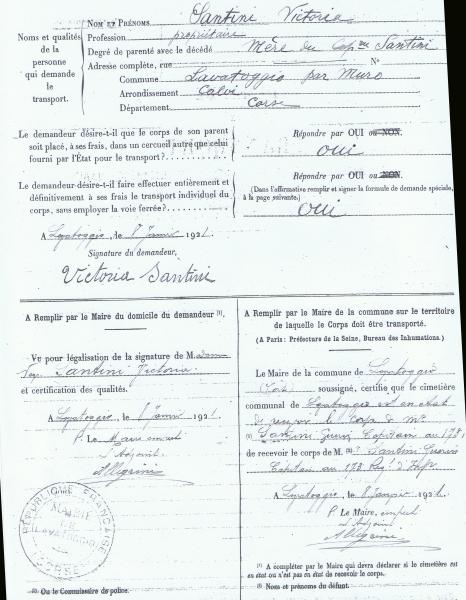 NOM ET PRÉNOMS Santini Victoria
Profession propriétaire
Degré de parenté avec le décédé Mère du Cap^ne Santini
Adresse complète, rue N°
Commune Lavatoggio par Muro
Arrondissement Calvi
Département Corse
Noms et qualités
de la
personne
qui demande
le
transport.
Le demandeur désire-t-il que le corps de son parent
soit placé, à ses frais, dans un cercueil autre que celui
fourni par l'État pour le transport?
Répondre par OUI ou NON.
oui
Le demandeur désire-t-il faire effectuer entièrement et
définitivement à ses frais le transport individuel du
corps, sans employer la voie ferrée?
Répondre par OUI ou NON.
(Dans l'affirmative remplir et signer la formule de demande spéciale,
à la page suivante.)
oui
A Lavatoggio, le 8 Janvier 1921.
Signature du demandeur,
Victoria Santini
A Remplir par le Maire du domicile du demandeur (1).
Vu pour légalisation de la signature de M.
Santini Victoria
et certification des qualités.
A Lavatoggio, le 8 Janvier 1921
P. Le Maire
l'Adjoint
Allegrini
RÉPUBLIQUE FRANÇAISE
MAIRIE
DE
LAVATOGGIO
(CORSE)
(2) Ou le Commissaire de police.
A Remplir par le Maire de la commune sur le territoire
de laquelle le Corps doit être transporté.
(A Paris : Préfecture de la Seine, Bureau des Inhumations.)
Le Maire de la commune de Lavatoggio
soussigné, certifie que le cimetière
communal de Lavatoggio est en état
de recevoir le corps de Mr
(1) Santini Capitaine au 173
de recevoir le corps de M. (2) Santini
Capitaine au 173 Reg^t d'Inf^ie
A Lavatoggio, le 8 Janvier 1921.
P. Le Maire,
l'Adjoint
Allegrini
(1) A compléter par le Maire qui devra déclarer si le cimetière est
en état ou n'est pas en état de recevoir le corps.
(2) Noms et prénoms du défunt.